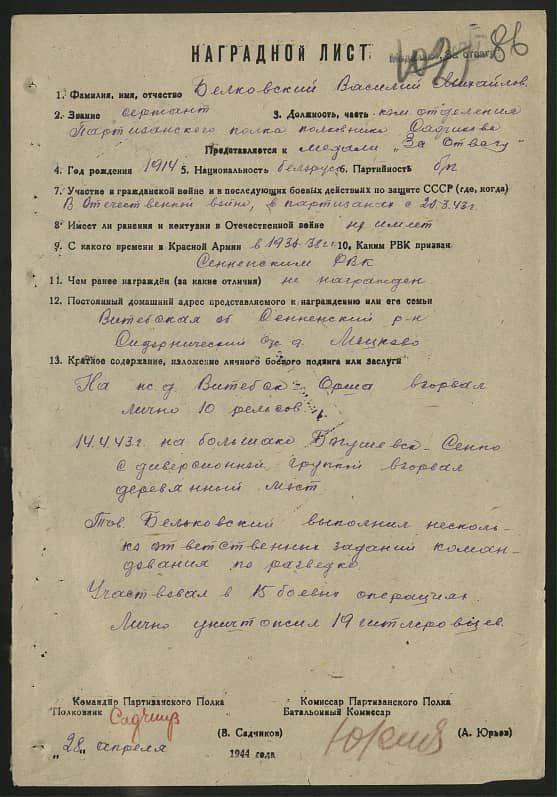 86
НАГРАДНОЙ ЛИСТ
за отвагу
1. Фамилия, имя, отчество Белковский Василий Михайлов.
2. Звание сержант 3. Должность, часть ком отделения
Партизанского полка полковника Садчикова
Представляется к медали „За отвагу"
4. Год рождения 1914 5. Национальность беларус 6. Партийность б/п
7. Участие в гражданской войне и в последующих боевых действиях по защите СССР (где, когда)
В Отечественной войне, в партизанах с 20.3.43г.
8. Имеет ли ранения и контузии в Отечественной войне не имеет
9. С какого времени в Красной Армии в 1936-38гг. 10. Каким РВК призван
Сенненским РВК
11. Чем ранее награждён (за какие отличия) не награжден
12. Постоянный домашний адрес представляемого к награждению или его семьи
Витебская об Сенненский р-н
д. Мацково
13. Краткое содержание, изложение личного боевого подвига или заслуги
На жд Витебск - Орша взорвал
лично 10 рельсов.
14.4.43г. на большаке Богушевск - Сенно
с диверсионной группой взорвал
деревянный мост
Тов. Бельковский выполнил несколь-
ко ответственных заданий коман-
дования по разведке
Участвовал в 15 боевых операциях.
Лично уничтожил 19 гитлеровцев.
Командир Партизанского Полка
Полковник Садчиков
(В. Садчиков)
Комиссар Партизанского Полка
Батальонный Комиссар
Юрьев (А. Юрьев)
„28" апреля 1944 года